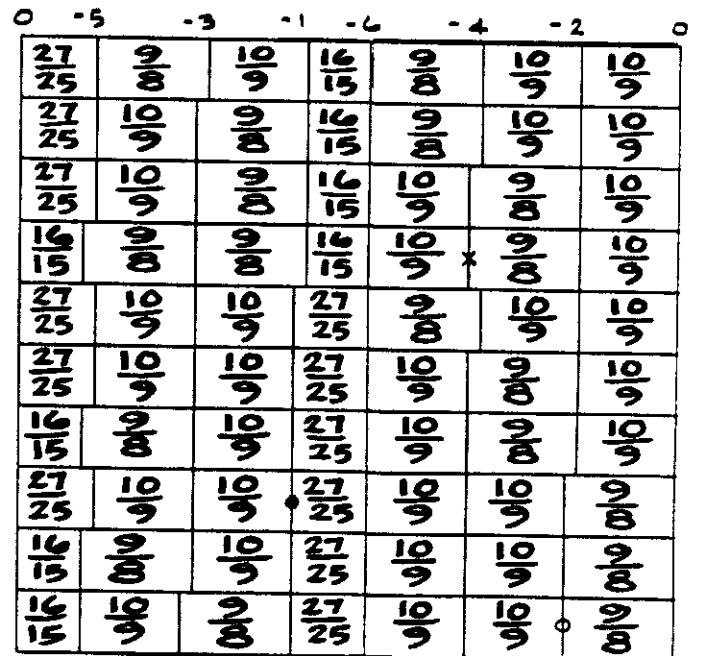 0 -5 -3 -1 -6 -4 -2 0
27/25 9/8 10/9 16/15 9/8 10/9 10/9
27/25 10/9 9/8 16/15 9/8 10/9 10/9
27/25 10/9 9/8 16/15 10/9 9/8 10/9
16/15 9/8 9/8 16/15 10/9 x 9/8 10/9
27/25 10/9 10/9 27/25 9/8 10/9 10/9
27/25 10/9 10/9 27/25 10/9 9/8 10/9
16/15 9/8 10/9 27/25 10/9 9/8 10/9
27/25 10/9 10/9 27/25 10/9 10/9 9/8
16/15 9/8 10/9 27/25 10/9 10/9 9/8
16/15 10/9 9/8 27/25 10/9 10/9 9/8